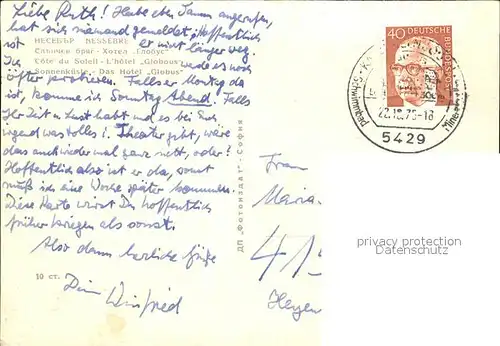 Liebe Ruth! Habe eben Samm angerufen,
hat sich niemand gemeldet, Hoffentlich
НЕСЕБЪР NESSEBRE
ist er nicht länger weg.
Слънчев бряг - Хотел „Глобус“
werde es noch
Côte du Soleil - L'hôtel „Globous“
öfter probieren. Falls er Montag da
Sonnenküste - Das Hotel „Globus“
ist, komme ich Sonntag Abend. Falls
Ihr Zeit u. Lust habt und es bei Euch
irgend was tolles i. Theater gibt, wäre
das auch wieder mal ganz nett, oder?
Hoffentlich also ist er da, sonst
muß ich eine Woche später kommen.
Diese Karte wirst Du hoffentlich
früher kriegen als sonst.
Also dann herzliche Grüße
Dein Winfried
10 ст.
ДП „Фотоиздат“ - София
Frau
Maria
Hagen
40 DEUTSCHE BUNDESPOST
Schwimmbad
22.10.75-18
5429
privacy protection
Datenschutz